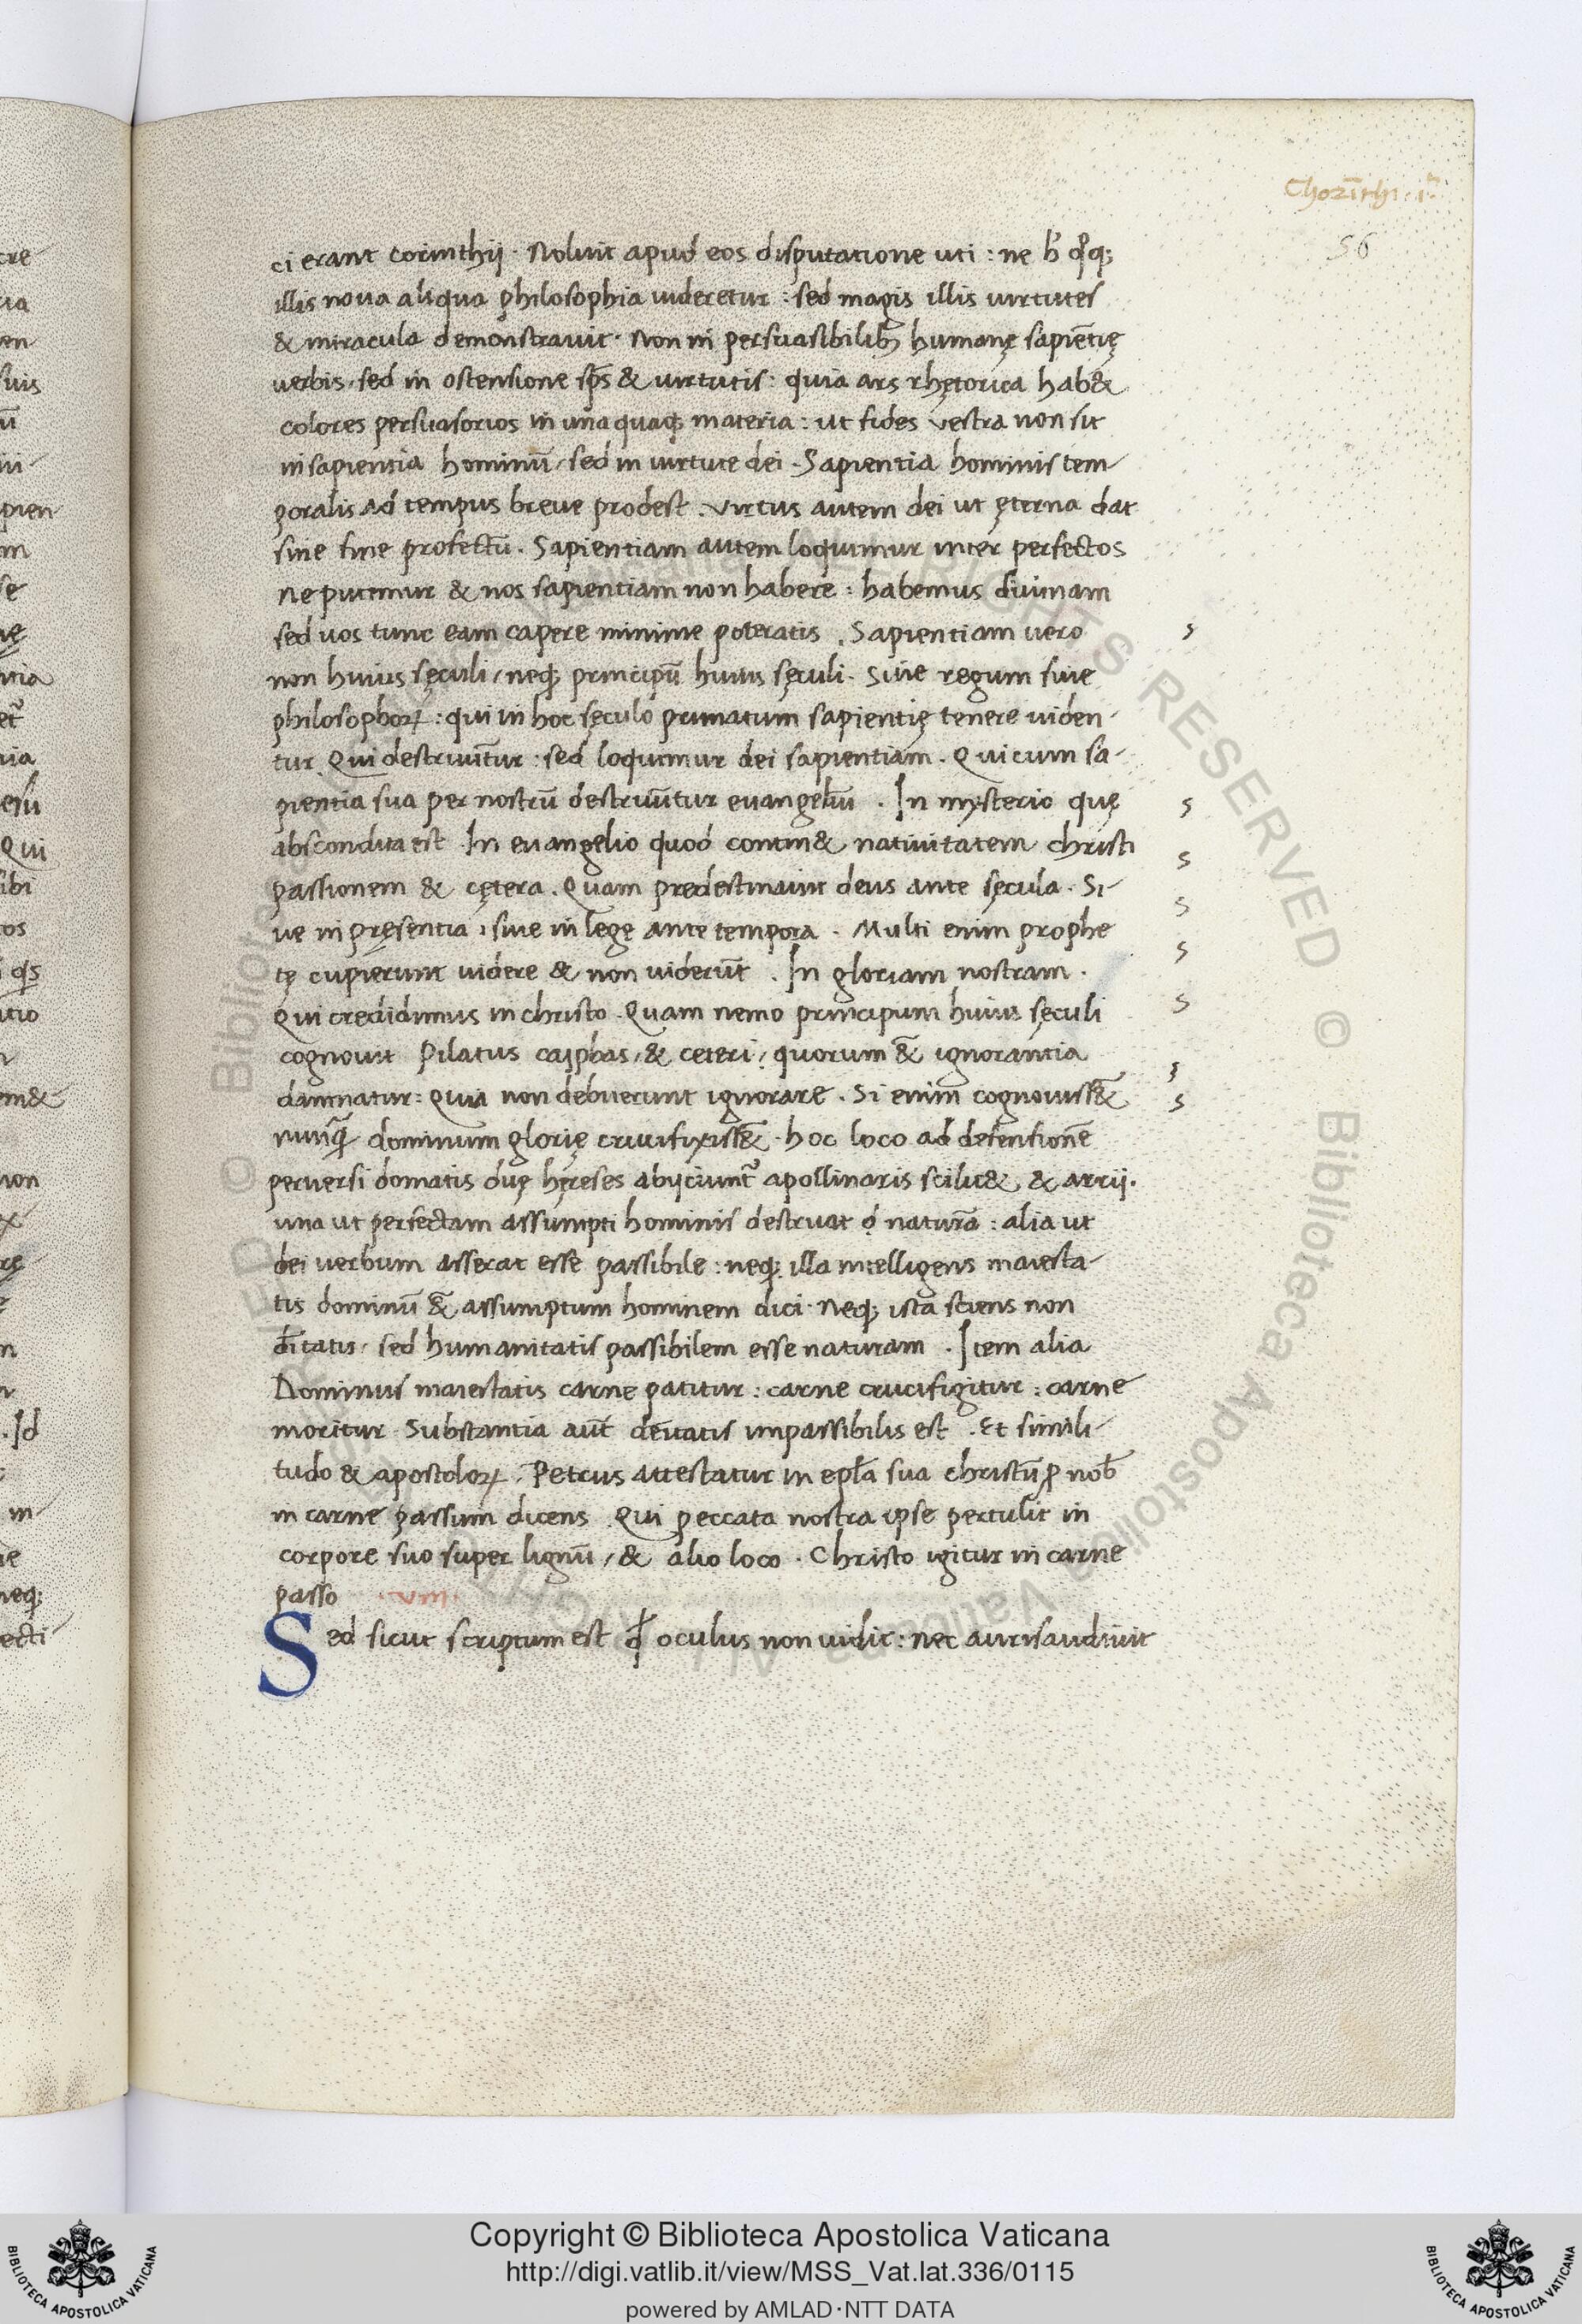 Chorīthi · i ͣ
56
ci erant corinthij · Noluit apud eos disputatione uti : ne h̄ qͦq;
illis noua aliqua philosophia uideretur : sed magis illis uirtutes
& miracula demonstrauit · Non in persuasibilib; humanę sapiētię
uerbis · sed in ostensione sp̄s & uirtutis : quia ars rhętorica hab&
colores persuasorios in una quaq; materia : ut fides vestra non sit
in sapientia hominū / sed in uirtute dei . Sapientia hominis tem
poralis ad tempus breue prodest . virtus autem dei ut ęterna dat
sine fine profectū . Sapientiam autem loquimur inter perfectos
ne putemur & nos sapientiam non habere : habemus diuinam
sed uos tunc eam capere minime poteratis . Sapientiam uero
non huius sęculi / neq; principū huius sęculi . Siue regum siue
philosophoꝝ : qui in hoc sęculo primatum sapientię tenere uiden
tur Qui destruūtur : sed loquimur dei sapientiam . Qui cum sa-
pientia sua per nostrū destruūtur euangeliū . In mysterio quę
abscondita est In euangelio quod contin& natiuitatem christi
passionem & cętera . Quam predestinauit deus ante sęcula . Si-
ue in pręsentia : siue in legę ante tempora . Multi enim prophe
tę cupierunt uidere & non uiderūt . In gloriam nostram .
Qui credidimus in christo . Quam nemo principum huius sęculi
cognouit Pilatus cayphas / & ceteri / quorum &̄ ignorantia
damnatur : Quia non debuerunt ignorare . Si enim cognouiss&̄
nunq̄ dominum glorię crucifixiss&̄ · hoc loco ad defensionē
peruersi domatis duę hęreses abijciunt̃ apollinaris scilic& & arrij .
una ut perfectam assumpti hominis destruat naturā : alia ut
dei uerbum asserat esse passibile : neq; illa intelligens maiesta-
tis dominū &̄ assumptum hominem dici · Neq; ista sciens non
dīitatis / sed humanitatis passibilem esse naturam . Item alia
Dominus maiestatis carne patitur : carne crucifigitur : carne
moritur Substantia aūt deitatis impassibilis est . Et simili-
tudo & apostoloꝝ . Petrus attestatur in epl̄a sua christū ꝓ nob̄
in carne passum dicens . Qui peccata nostra ipse pertulit in
corpore suo super lignū / & alio loco . Christo igitur in carne
passo · viii ·
Sed sicut scriptum est qđ oculus non uidit : nec auris audiuit
Copyright © Biblioteca Apostolica Vaticana
http://digi.vatlib.it/view/MSS_Vat.lat.336/0115
powered by AMLAD·NTT DATA